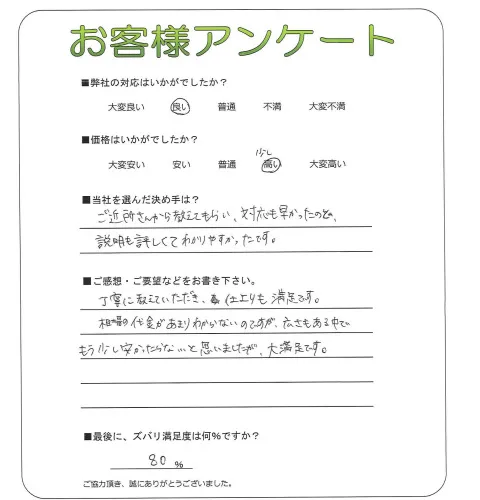 お客様アンケート
■弊社の対応はいかがでしたか？
大変良い 良い 普通 不満 大変不満
■価格はいかがでしたか？
少し
大変安い 安い 普通 高い 大変高い
■当社を選んだ決め手は？
ご近所さんから教えてもらい、対応も早かったので、
説明も詳しくてわかりやすかったです。
■ご感想・ご要望などをお書き下さい。
丁寧に教えていただき、仕上りも満足です。
相場の代金があまりわからないのですが、広さもある中で
もう少し安かったらないと思いましたが、大満足です。
■最後に、ズバリ満足度は何％ですか？
80 %
ご協力頂き、誠にありがとうございました。